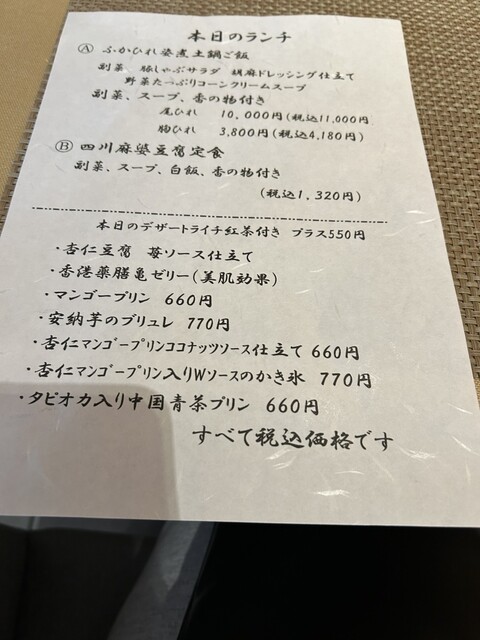 本日のランチ
Ⓐ ふかひれ姿煮土鍋ご飯
副菜、豚しゃぶサラダ 胡麻ドレッシング仕立て
野菜たっぷりコーンクリームスープ
副菜、スープ、香の物付き
尾ひれ 10,000円(税込11,000円
胸ひれ 3,800円(税込4,180円)
Ⓑ 四川麻婆豆腐定食
副菜、スープ、白飯、香の物付き
(税込1,320円)
本日のデザートライチ紅茶付き プラス550円
・杏仁豆腐 苺ソース仕立て
・香港薬膳亀ゼリー(美肌効果)
・マンゴープリン 660円
・安納芋のブリュレ 770円
・杏仁マンゴープリンココナッツソース仕立て 660円
・杏仁マンゴープリン入りWソースのかき氷 770円
・タピオカ入り中国青茶プリン 660円
すべて税込価格です